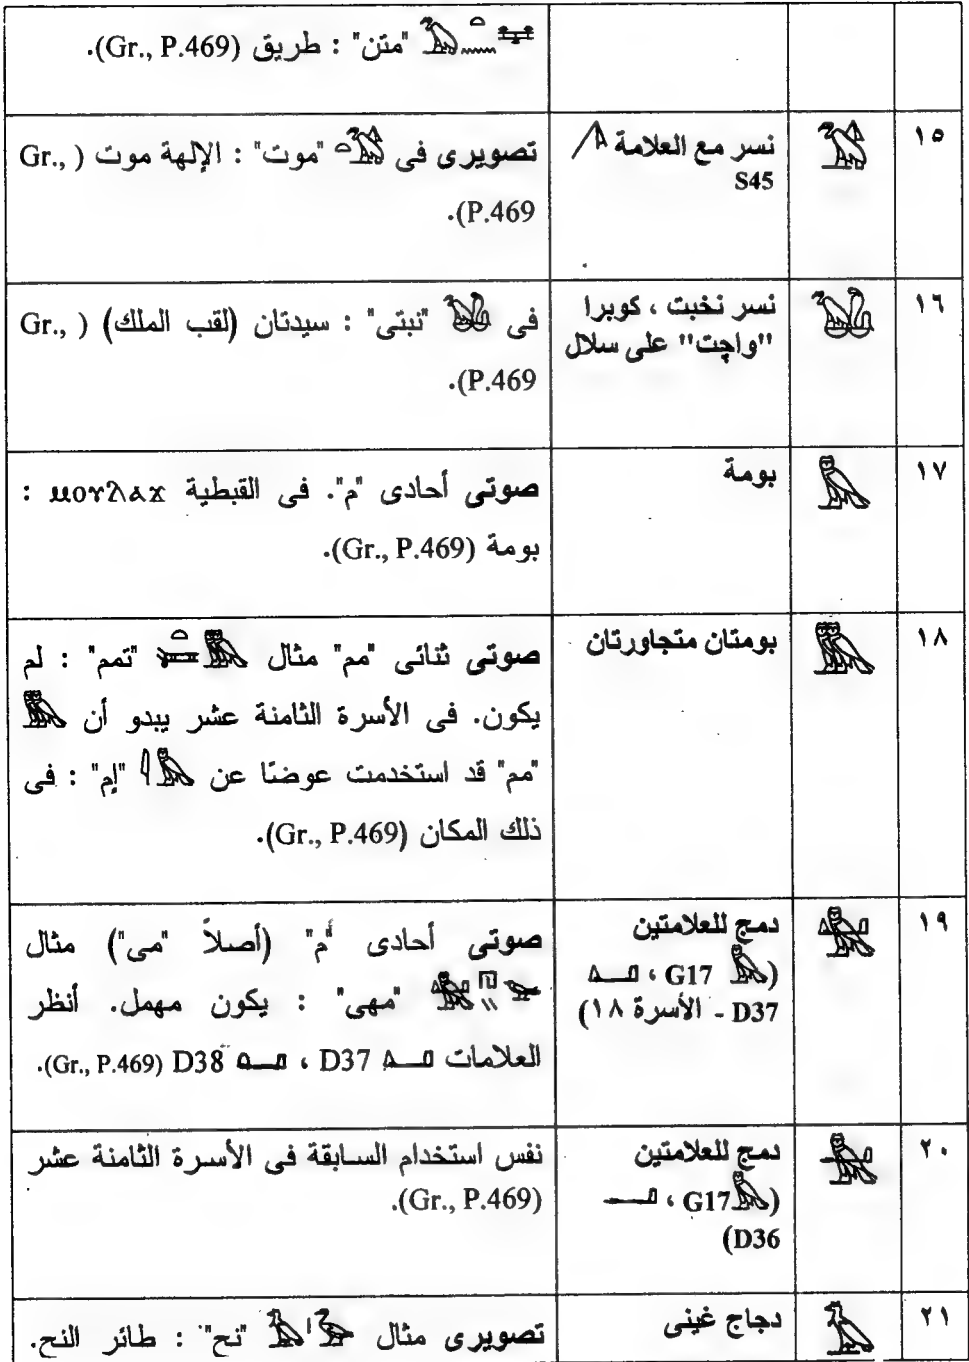 "متن" : طريق (Gr., P.469).
١٥
نسر مع العلامة
S45
تصويرى فى "موت" : الإلهة موت (Gr.,
P.469).
١٦
نسر نخبت ، كوبرا
"واچت" على سلال
فى "نبتى" : سيدتان (لقب الملك) (Gr.,
P.469).
١٧
بومة
صوتى أحادى "م". فى القبطية ⲙⲟⲩⲗⲁϫ :
بومة (Gr., P.469).
١٨
بومتان متجاورتان
صوتى ثنائى "مم" مثال "تمم" : لم
يكون. فى الأسرة الثامنة عشر يبدو أن
"مم" قد استخدمت عوضًا عن "إم" : فى
ذلك المكان (Gr., P.469).
١٩
دمج للعلامتين
(G17 ،
D37 - الأسرة ١٨)
صوتى أحادى "م" (أصلاً "مى") مثال
"مهى" : يكون مهمل. أنظر
العلامات D37 ، D38 (Gr., P.469).
٢٠
دمج للعلامتين
(G17 ،
D36)
نفس استخدام السابقة فى الأسرة الثامنة عشر
(Gr., P.469).
٢١
دجاج غينى
تصويرى مثال "نح" : طائر النح.